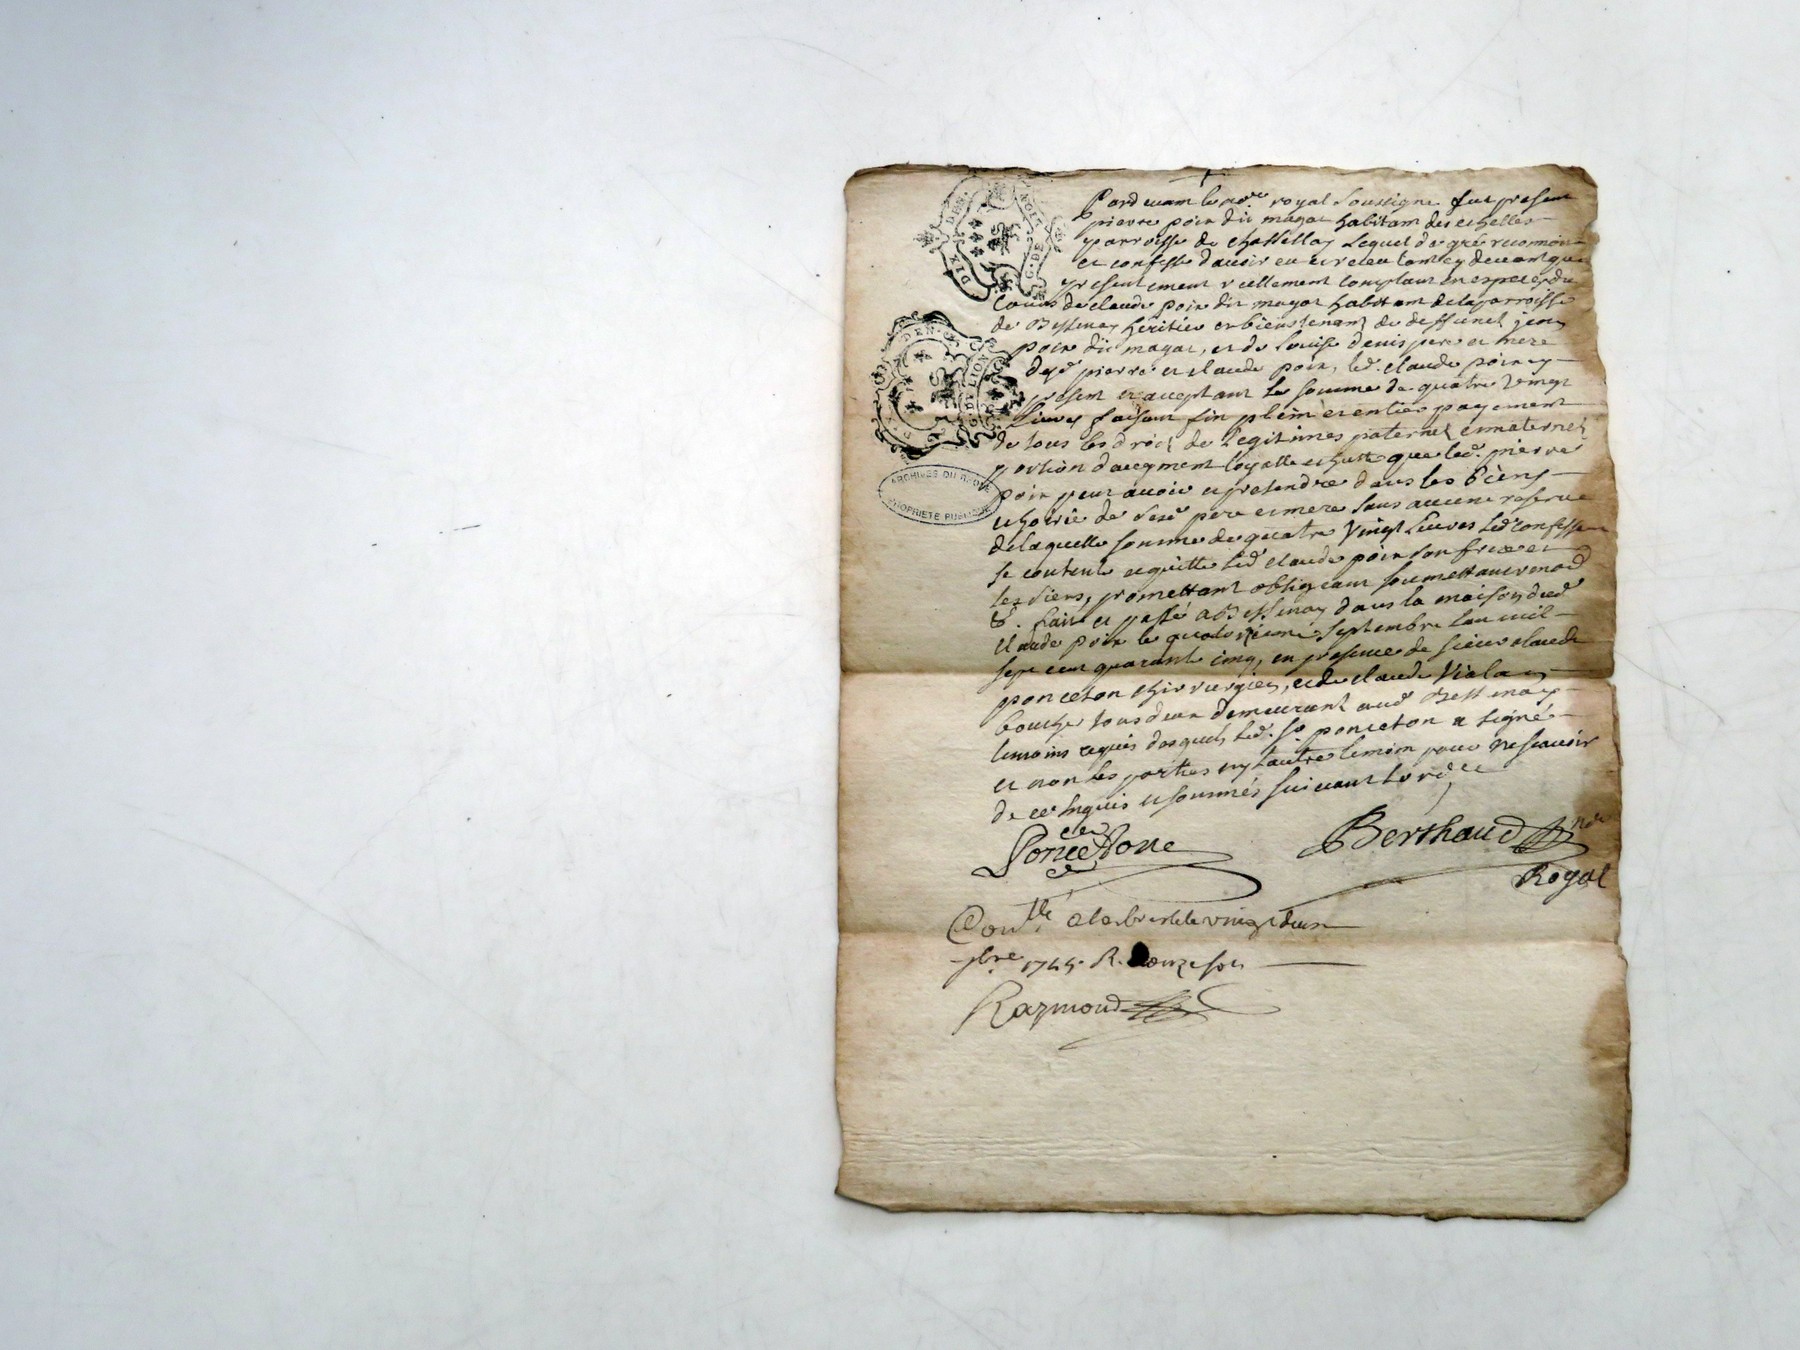 DIX DEN.
G. DE
DIX DEN.
G. DE LION
ARCHIVES DU RHÔNE
PROPRIÉTÉ PUBLIQUE
Pardevant le no.re royal soussigné fut present
pierre poix dit magat habitant des echelles
parroisse de chastellay lequel de gré reconnoit
et confesse d'avoir eu et receu tant cy devant que
presentement reellement comptant en especes du
cours de claude poix dit magat habitant de la parroisse
de Bessenay heritier et bientenant de deffunct jean
poix dit magat, et de Louise denis pere et mere
desd pierre et claude poix, led. claude poix cy
present et acceptant la somme de quatre vingt
livres faisant fin plein et entier payement
de tous les droits de legitimes paternel et maternel
portion d'augment que led. pierre
poix peut avoir et pretendre dans les biens
et hoirie de sesd pere et mere sans aucune reserve
de laquelle somme de quatre vingt livres led confessant
se contente et quitte led claude poix son frere et
les siens, promettant obligeant soumettant renonc
&. fait et passé a Bessenay dans la maison dud
claude poix le quatorzieme septembre l'an mil
sept cent quarante cinq, en presence de sieur claude
ponceton chirurgien, et de claude Viala
boucher tous deux demeurant aud Bessenay
temoins requis desquels led. sr ponceton a signé
et non les parties ny l'autre temoin pour ne scavoir
de ce enquis et sommés suivant l'ord.ce
Ponceton
Berthaud no.re
Royal
Con.llé a la bresle le vingt deux
7bre 1745. R. douze sols
Raymond